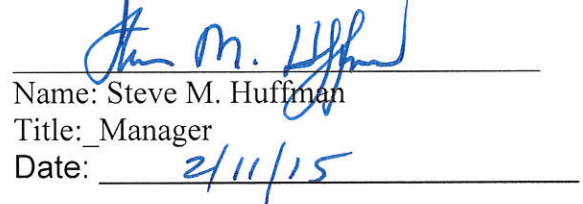 Steve M. Huffman
Name: Steve M. Huffman
Title:_Manager
Date: 2/11/15